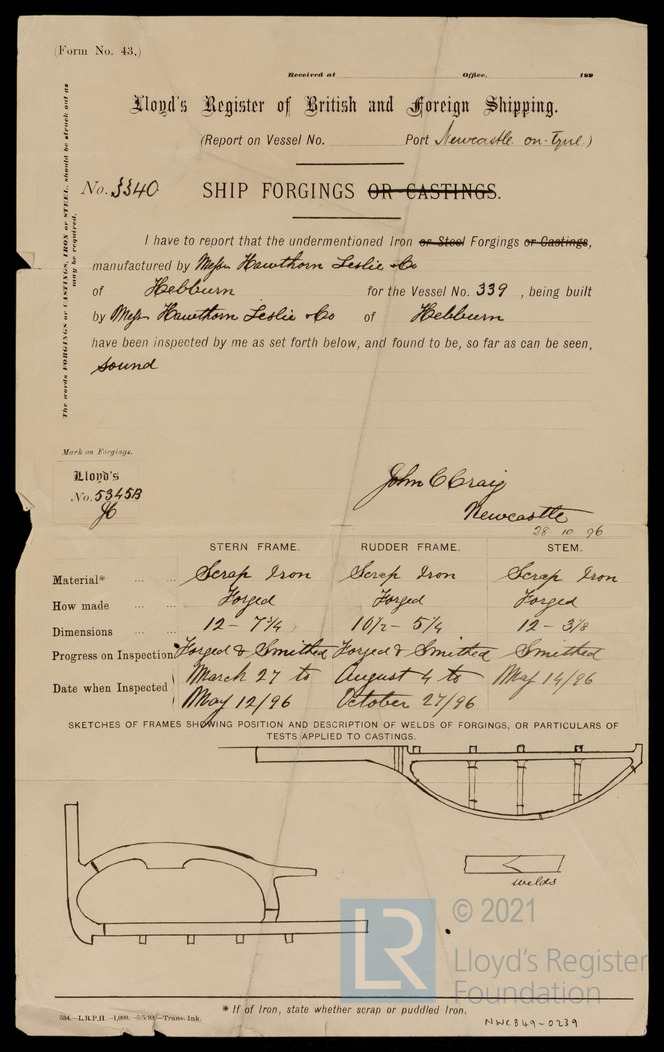 (Form No. 43.)
Received at Office, 189
Lloyd's Register of British and Foreign Shipping.
(Report on Vessel No. Port Newcastle on Tyne.)
The words FORGINGS or CASTINGS, IRON or STEEL, should be struck out as
may be required.
No. 3340 SHIP FORGINGS OR CASTINGS.
I have to report that the undermentioned Iron or Steel Forgings or Castings,
manufactured by Messrs Hawthorn Leslie & Co
of Hebburn for the Vessel No. 339 , being built
by Messrs Hawthorn Leslie & Co of Hebburn
have been inspected by me as set forth below, and found to be, so far as can be seen,
sound
Mark on Forgings.
Lloyd's
No. 5345B
JC
John C Craig
Newcastle
28 10 96
STERN FRAME. RUDDER FRAME. STEM.
Material* ... ... Scrap Iron Scrap Iron Scrap Iron
How made ... ... Forged Forged Forged
Dimensions ... ... 12 - 7 3/4 10 1/2 - 5 1/4 12 - 3/8
Progress on Inspection Forged & Smithed Forged & Smithed Smithed
Date when Inspected March 27 to August 4 to May 14/96
May 12/96 October 27/96
SKETCHES OF FRAMES SHOWING POSITION AND DESCRIPTION OF WELDS OF FORGINGS, OR PARTICULARS OF
TESTS APPLIED TO CASTINGS.
welds
LR © 2021
Lloyd's Register
Foundation
* If of Iron, state whether scrap or puddled Iron.
534.—L.R.P.H.—1,000.—5/5/93.—Trans. Ink.
NWC849-0239